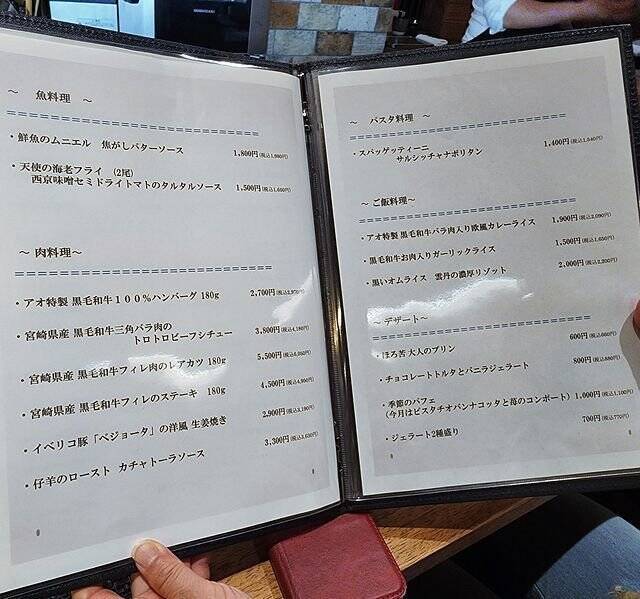 ～ 魚料理 ～
・鮮魚のムニエル 焦がしバターソース 1,800円(税込1,980円)
・天使の海老フライ (2尾)
西京味噌セミドライトマトのタルタルソース 1,500円(税込1,650円)
～ 肉料理～
・アオ特製 黒毛和牛１００％ハンバーグ 180g 2,700円(税込2,970円)
・宮崎県産 黒毛和牛三角バラ肉の
トロトロビーフシチュー 3,800円(税込4,180円)
・宮崎県産 黒毛和牛フィレ肉のレアカツ 180g 5,500円(税込6,050円)
・宮崎県産 黒毛和牛フィレのステーキ 180g 4,500円(税込4,950円)
・イベリコ豚「ベジョータ」の洋風 生姜焼き 2,900円(税込3,190円)
・仔羊のロースト カチャトーラソース 3,300円(税込3,630円)
～ パスタ料理 ～
・スパッゲッティーニ
サルシッチャナポリタン 1,400円(税込1,540円)
～ご飯料理～
・アオ特製 黒毛和牛バラ肉入り欧風カレーライス 1,900円(税込2,090円)
・黒毛和牛お肉入りガーリックライス 1,500円(税込1,650円)
・黒いオムライス 雲丹の濃厚リゾット 2,000円(税込2,200円)
～デザート～
・ほろ苦 大人のプリン 600円(税込660円)
・チョコレートトルタとバニラジェラート 800円(税込880円)
・季節のパフェ
(今月はピスタチオパンナコッタと苺のコンポート) 1,000円(税込1,100円)
・ジェラート2種盛り 700円(税込770円)